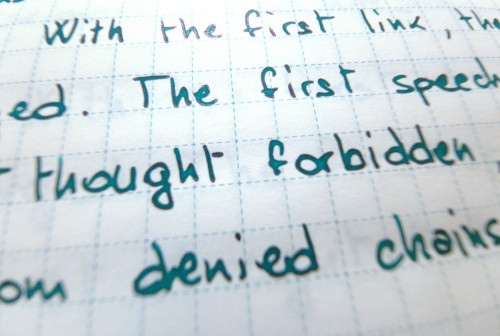 With the first link, the
ed. The first speech
thought forbidden,
om denied chains